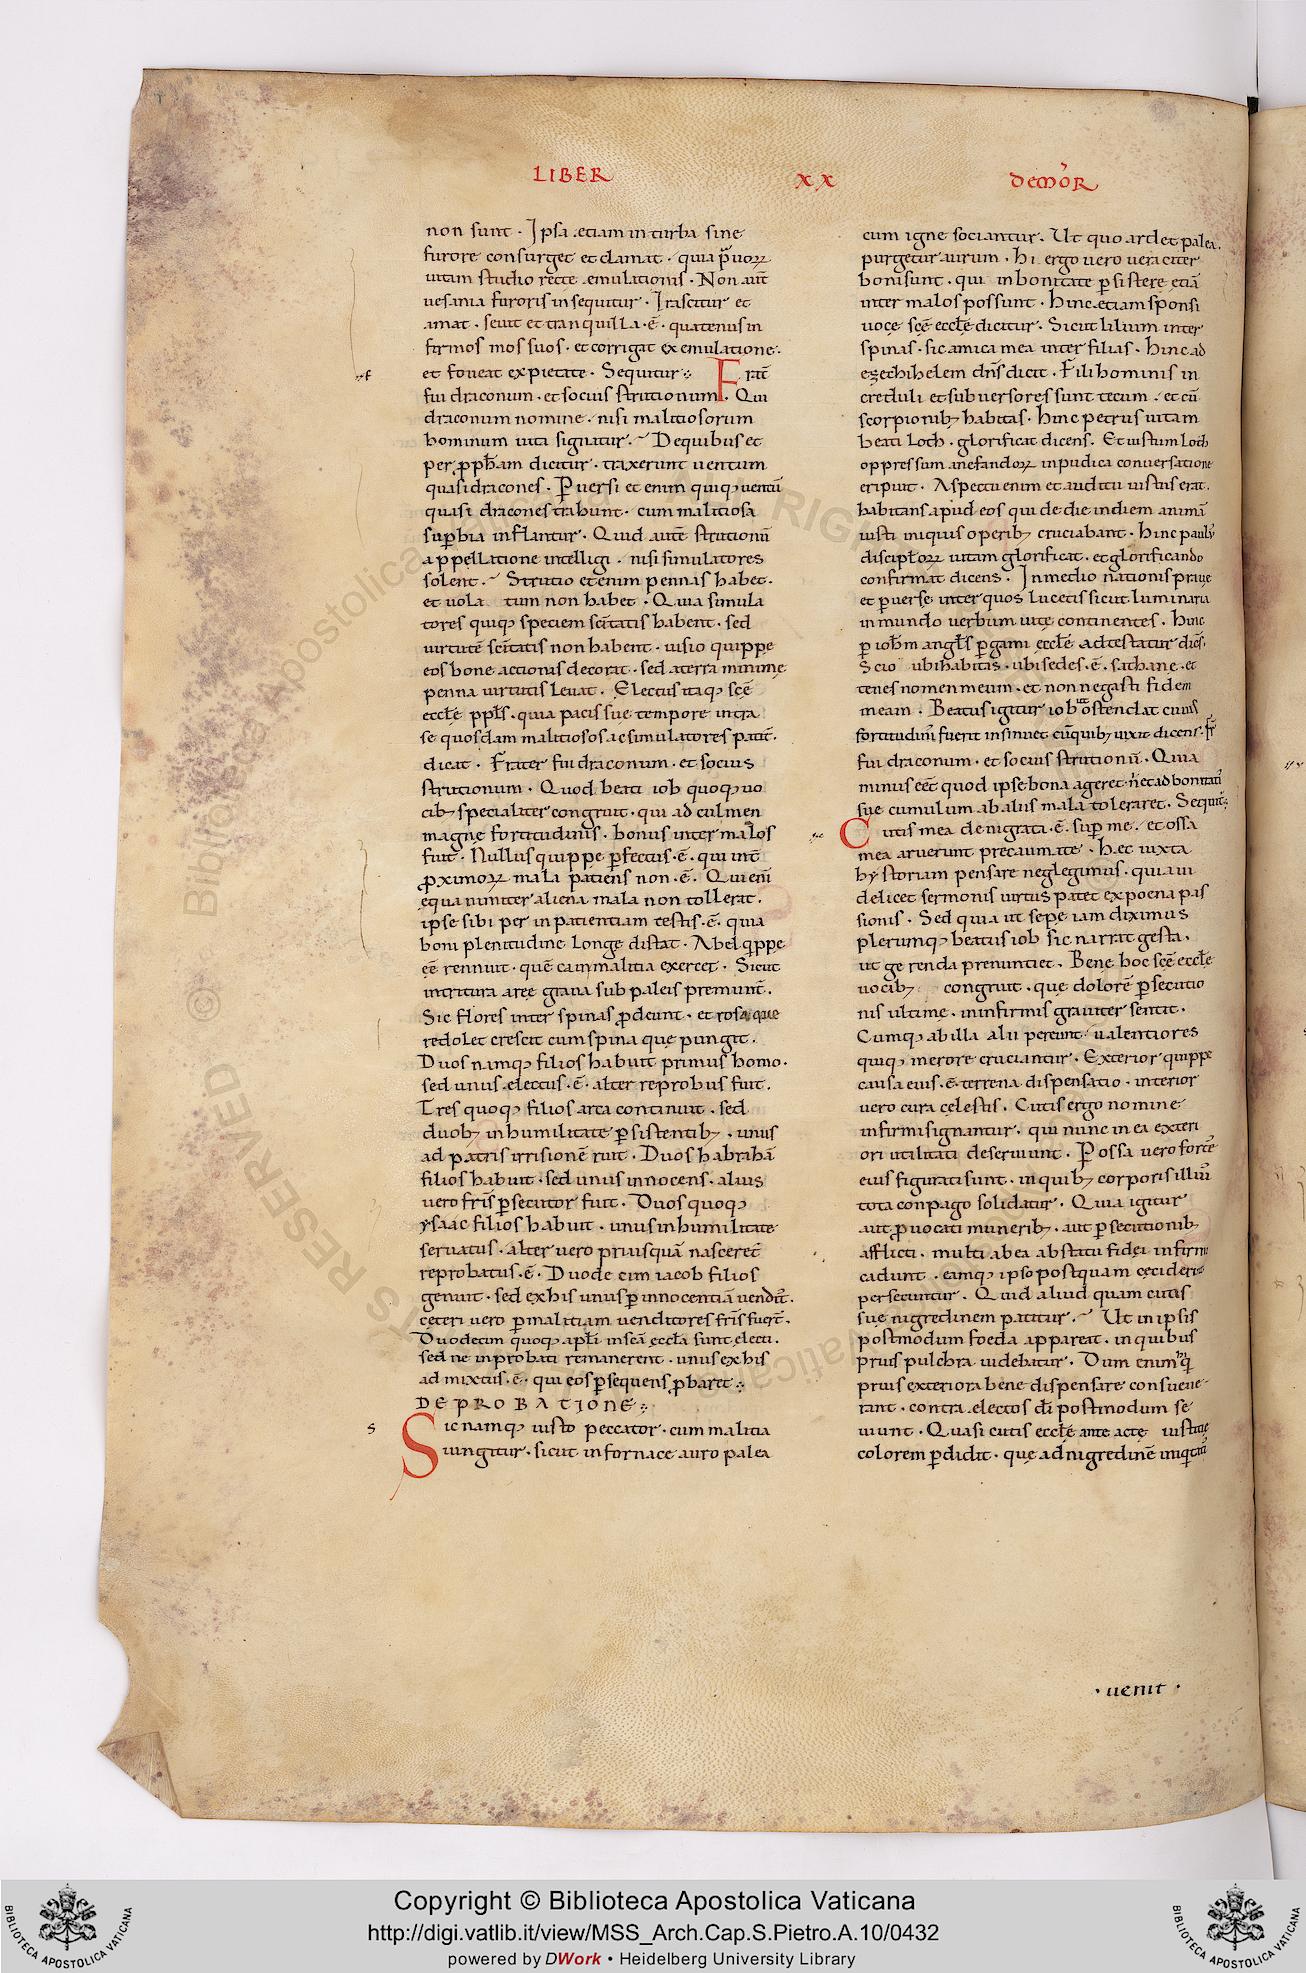 LIBER XX DEMOR̄
non sunt · Ipsa etiam in turba sine
furore consurget et clamat · quia p̄uoꝝ
uitam studio recte emulationis · Non aut̄
uesania furoris insequitur · Irascitur et
amat · seuit et tranquilla · ē · quatenus in
firmos mos suos · et corrigat ex emulatione ·
et foueat ex pietate · Sequitur · Frat̄
fui draconum · et socius strutionum · Qui
draconum nomine · nisi malitiosorum
hominum uita signatur · De quibus et
per ꝓph̄am dicitur · traxerunt uentum
quasi dracones · Puersi et enim quiq; uentū
quasi dracones trahunt · cum malitiosa
sup̱bia inflantur · Quid autē strutionū
appellatione intelligi · nisi simulatores
solent · Strutio etenim pennas habet ·
et uola tum non habet · Quia simula
tores quiq; speciem sc̄itatis habent · sed
uirtutē sc̄itatis non habent · uisio quippe
eos bone actionis decorat · sed a terra minime
penna uirtutis leuat · Electus itaq; scē
eccl̄e ppl̄s · quia pacis sue tempore intra
se quosdam malitiosos ac simulatores patit̄ ·
dicat · Frater fui draconum · et socius
strutionum · Quod beati iob quoq; uo
cib; specialiter congruit · qui ad culmen
magne fortitudinis · bonus inter malos
fuit · Nullus quippe p̱fectus · ē · qui int̄
ꝓximoꝝ mala patiens non · ē · Qui eni̅
equanimiter aliena mala non tollerat ·
ipse sibi per inpatientiam testis · ē · quia
boni plenitudine longe distat · Abel q̇ppe
eē rennuit · quē cain malitia exercet · Sicut
intritura aree grana sub paleis premunt̄ ·
Sic flores inter spinas ꝓdeunt · et rosa que
redolet crescit cum spina que pungit ·
Duos namq; filios habuit primus homo ·
sed unus electus · ē · alter reprobus fuit ·
Tres quoq; filios arca continuit · sed
duob; in humilitate p̱sistentib; · unus
ad patris irrisionē ruit · Duos habrahā
filios habuit · sed unus innocens · alius
uero fr̄is p̱secutor fuit · Duos quoq;
ysaac filios habuit · unus in humilitate
seruatus · alter uero priusquā nasceret̄
reprobatus · ē · Duodecim iacob filios
genuit · sed ex his unus p̱ innocentiā uendit̄ ·
ceteri uero p̱ malitiam uenditores fr̄is fuer̄t ·
Duodecim quoq; apl̄i in sc̄a eccl̄a sunt electi ·
sed ne inprobati remanerent · unus ex his
admixtus · ē · qui eos p̱sequens ꝓbaret ·
DE PROBATIONE ·
Sic namq; iusto peccator · cum malitia
iungitur · sicut in fornace auro palea
cum igne sociantur · Ut quo ardet palea ·
purgetur aurum · Hi ergo uero ueraciter
boni sunt · qui in bonitate p̱sistere etiā
inter malos possunt · Hinc etiam sponsi
uoce scē eccl̄e dicitur · Sicut lilium inter
spinas · sic amica mea inter filias · Hinc ad
ezechihelem dn̄s dicit · Fili hominis in
creduli et subuersores sunt tecum · et cū
scorpionib; habitas · Hinc petrus uitam
beati loth · glorificat dicens · Et iustum loth
oppressum a nefandoꝝ inpudica conuersatione
eripuit · Aspectu enim et auditu iustus erat ·
habitans apud eos qui de die in diem animā
iusti iniquis operib; cruciabant · Hinc paulus
discipl̄oꝝ uitam glorificat · et glorificando
confirmat dicens · In medio nationis praue
et p̱uerse · inter quos lucetis sicut luminaria
in mundo uerbum uite continentes · Hinc
p̱ ioh̄m angl̄s p̱gami eccl̄e adtestatur dicēs ·
Scio ubi habitas · ubi sedes · ē · sathane · et
tenes nomen meum · et non negasti fidem
meam · Beatus igitur iob ut ostendat cuius
fortitudin̄ fuerit insinuet cū quib; uixit dicens · Fr̄
fui draconum · et socius strutionū · Quia
minus eēt quod ipse bona ageret · n̄ et ad bonitatis
sue cumulum ab aliis mala toleraret · Sequit̄ ·
Cutis mea denigrata · ē · sup̱ me · et ossa
mea aruerunt pre caumate · Hec iuxta
hystoriam pensare neglegimus · quia ui
delicet sermonis uirtus patet ex poena pas
sionis · Sed quia ut sepe iam diximus
plerumq; beatus iob sic narrat gesta ·
ut gerenda prenuntiet · Bene hoc scē eccl̄e
uocib; congruit · que dolorē p̱secutio
nis ultime · in infirmis grauiter sentit ·
Cumq; ab illa alii pereunt · ualentiores
quiq; merore cruciantur · Exterior quippe
causa eius · ē · terrena dispensatio · interior
uero cura celestis · Cutis ergo nomine
infirmi signantur · qui nunc in ea exteri
ori utilitati deseruiunt · P ossa uero fortes
eius figurati sunt · in quib; corporis illius
tota conpago solidatur · Quia igitur
aut ꝓuocati munerib; · aut p̱secutionib;
afflicti · multi ab ea a statu fidei infirmi
cadunt · eamq; ipso postquam cecideri̅t
persecuntur · Quid aliud quam cutis
sue nigredinem patitur · Ut in ipsis
postmodum foeda appareat · in quibus
prius pulchra uidebatur · Dum enim hi q̇
prius exteriora bene dispensare consueue
rant · contra electos di̅ postmodum se
uiunt · Quasi cutis eccl̄e ante acte iustitie
colorem p̱didit · que ad nigredinē iniq̇tatis
· uenit ·
Copyright © Biblioteca Apostolica Vaticana
http://digi.vatlib.it/view/MSS_Arch.Cap.S.Pietro.A.10/0432
powered by DWork • Heidelberg University Library